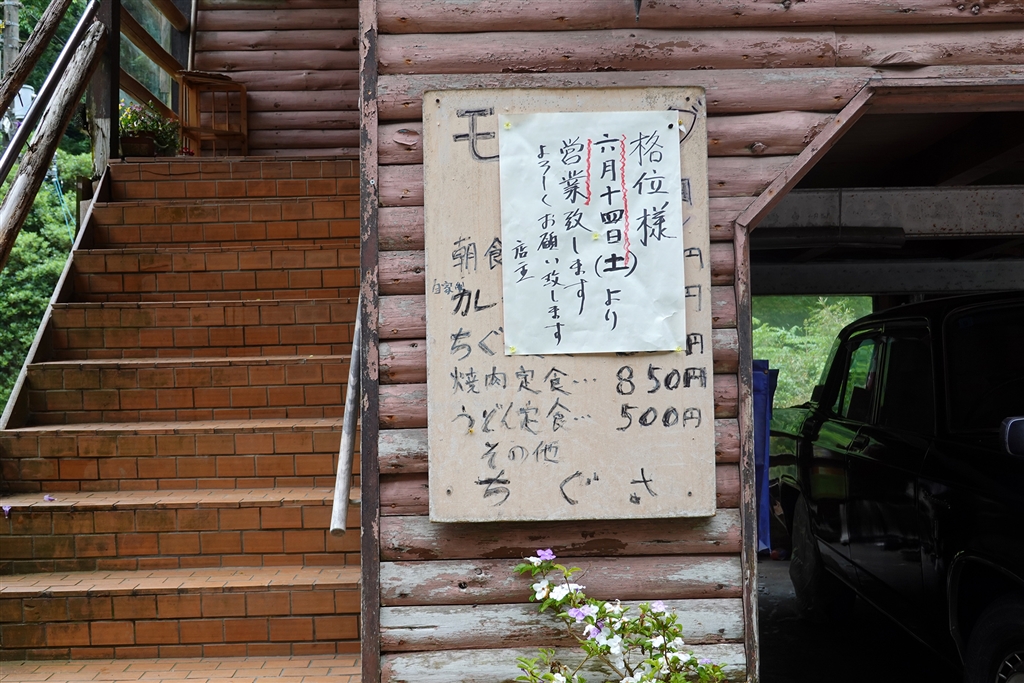 格位様
六月十四日(土)より
営業致します
よろしくお願い致します
店主
モ グ
朝食 円
自家製
カレ 円
ちぐ 円
焼肉定食… 850円
うどん定食… 500円
その他
ちぐさ